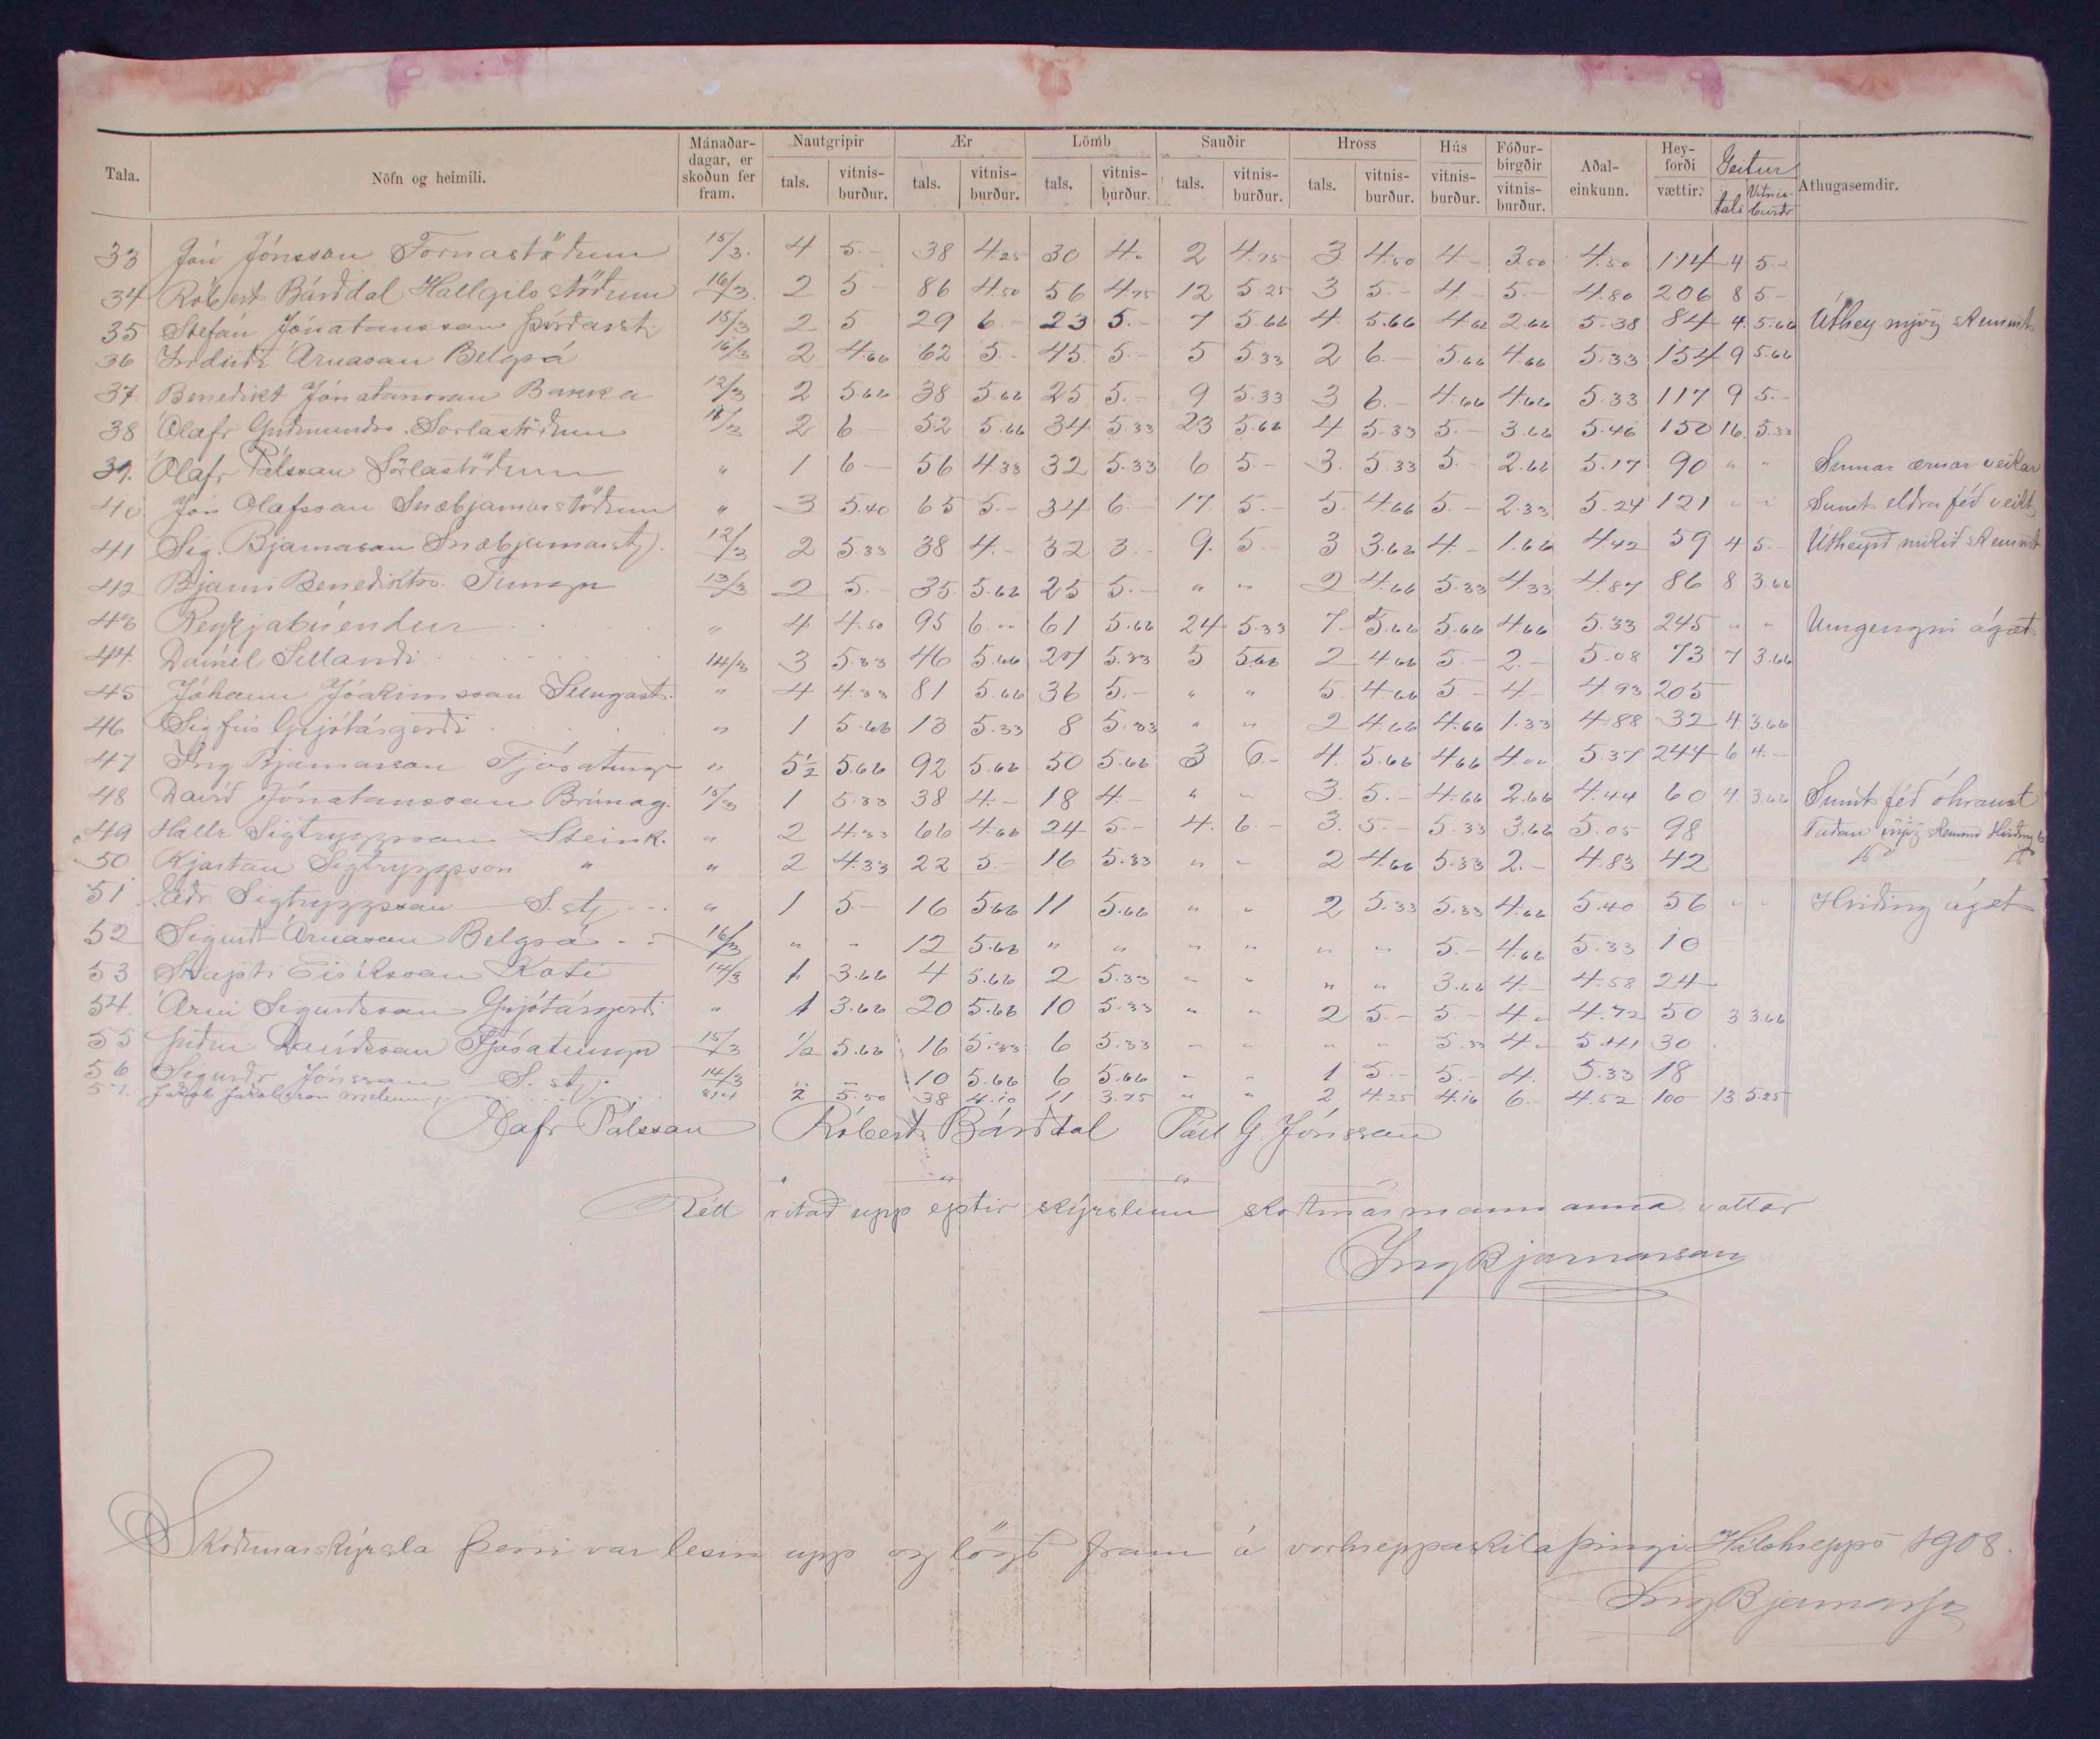 Tala. Nöfn og heimili. Mánaðardagar, er skoðun fer fram. Nautgripir tals. vitnisburður. Ær tals. vitnisburður. Lömb tals. vitnisburður. Sauðir tals. vitnisburður. Hross tals. vitnisburður. Hús vitnisburður. Fóðurbirgðir vitnisburður. Aðaleinkunn. Heyforði vættir. Geitur tals Vitnisburðr Athugasemdir.
33 Jón Jónsson Fornastöðum 15/3. 4 5.- 38 4.25 30 4.- 2 4.75 3 4.50 4- 3.50 4.50 114 4 5.-
34 Róbert Bárðdal Hallgilsstöðum 16/3. 2 5- 86 4.50 56 4.75 12 5.25 3 5.- 4.- 5.- 4.80 206 8 5-
35 Stefán Jónatansson Þórðarst. 15/3 2 5 29 6.- 23 5.- 7 5.66 4. 5.66 4.66 2.66 5.38 84 4. 5.66 Úthey mjög skemmt
36 Indriði Árnason Belgsá 16/3 2 4.66 62 5.- 45. 5- 5 5.33 2 6.- 5.66 4.66 5.33 154 9 5.66
37. Benedikt Jónatansson Bakka 12/3 2 5.66 38 5.66 25 5.- 9 5.33 3 6.- 4.66 4.66 5.33 117 9 5.-
38 Ólafr Guðmundss. Sörlastöðum 11/3 2 6- 52 5.66 34 5.33 23 5.66 4 5.33 5.- 3.66 5.46 150 16. 5.33
39. Ólafr Pálsson Sörlastöðum " 1 6- 56 4.33 32 5.33 6 5- 3. 5.33 5.- 2.66 5.17 90 " " Sumar ærnar veikar
40. Jón Ólafsson Snæbjarnarstöðum " 3 5.40 65 5.- 34 6- 17. 5.- 5. 4.66 5.- 2.33 5.24 121 " " Sumt eldra féð veikt
41 Sig. Bjarnason Snæbjarnarstj. 12/3 2 5.33 38 4.- 32 3.- 9. 5- 3 3.62 4.- 1.66 4.42 59 4 5.- Útheyið mikið skemmt
42 Bjarni Benediktss. Tungu 13/3 2 5.- 35. 5.66 25 5.- " " 2 4.66 5.33 4.33 4.87 86 8 3.66
43 Reykjabúendur " 4 4.50 95 6.- 61 5.66 24 5.33 7 5.66 5.66 4.66 5.33 245 " " Umgengni ágæt
44. Daníel Sellandi 14/3 3 5.33 46 5.66 27 5.33 5 5.66 2 4.66 5.- 2.- 5.08 73 7 3.66
45 Jóhann Jóakimsson " 4 4.33 81 5.66 36 5.- " " 5. 4.66 5- 4- 4.93 205
46 Sigfús Grjótárgerði " 1 5.66 13 5.33 8 5.33 " " 2 4.66 4.66 1.33 4.88 32 4. 3.66
47 Ing. Bjarnarson Fjósatungu " 5½ 5.66 92 5.66 50 5.66 3 6.- 4. 5.66 4.66 4.- 5.37 244 6 4.-
48 Davíð Jónatansson Brúnag. 15/3 1 5.33 38 4.- 18 4- " - 3. 5.- 4.66 2.66 4.44 60 4. 3.66 Sumt féð óhraust
49 Hallr Sigtryggsson Steink. " 2 4.33 66 4.66 24 5.- 4. 6.- 3. 5- 5.33 3.66 5.05 98 Taðan mjög skemmd Hirðing
50 Kjartan Sigtryggsson " " 2 4.33 22 5.- 16 5.33 " - 2 4.66 5.33 2.- 4.83 42
51 Sigtryggsson S.stj " 1 5- 16 5.66 11 5.66 " " 2 5.33 5.33 4.66 5.40 56 " " Hirðing ágæt
52 Sigurð Árnason Belgsá 16/3 " - 12 5.66 " " " " " " 5.- 4.66 5.33 10
53 Skapti Eiríksson Koti 14/3 1. 3.66 4 5.66 2 5.33 " " " " 3.66 4.- 4.58 24
54. Árni Sigurðsson Grjótárgerði " 1 3.66 20 5.66 10 5.33 " " 2 5.- 5- 4.- 4.72 50 3 3.66
55 Guðm Davíðsson Fjósatungu 15/3 ½ 5.66 16 5.33 6 5.33 - - " " 5.33 4- 5.41 30
56 Sigurðr Jónsson S. stj. 14/3 " - 10 5.66 6 5.66 - - 1 5.- 5.- 4. 5.33 18
57. Jakob Jakobsson 2 5.50 38 4.10 11 3.75 " " 2 4.25 4.16 6.- 4.52 100 13 5.25
Ólafr Pálsson Róbert Bárðdal Páll G. Jónsson
Rétt ritað upp eptir skýrslum skoðunarmannanna vottar
Ing Bjarnarson
Skoðunarskýrsla þessi var lesin upp og lögð fram á vorhreppaskilaþingi Hálshrepps 1908.
Ing Bjarnarson